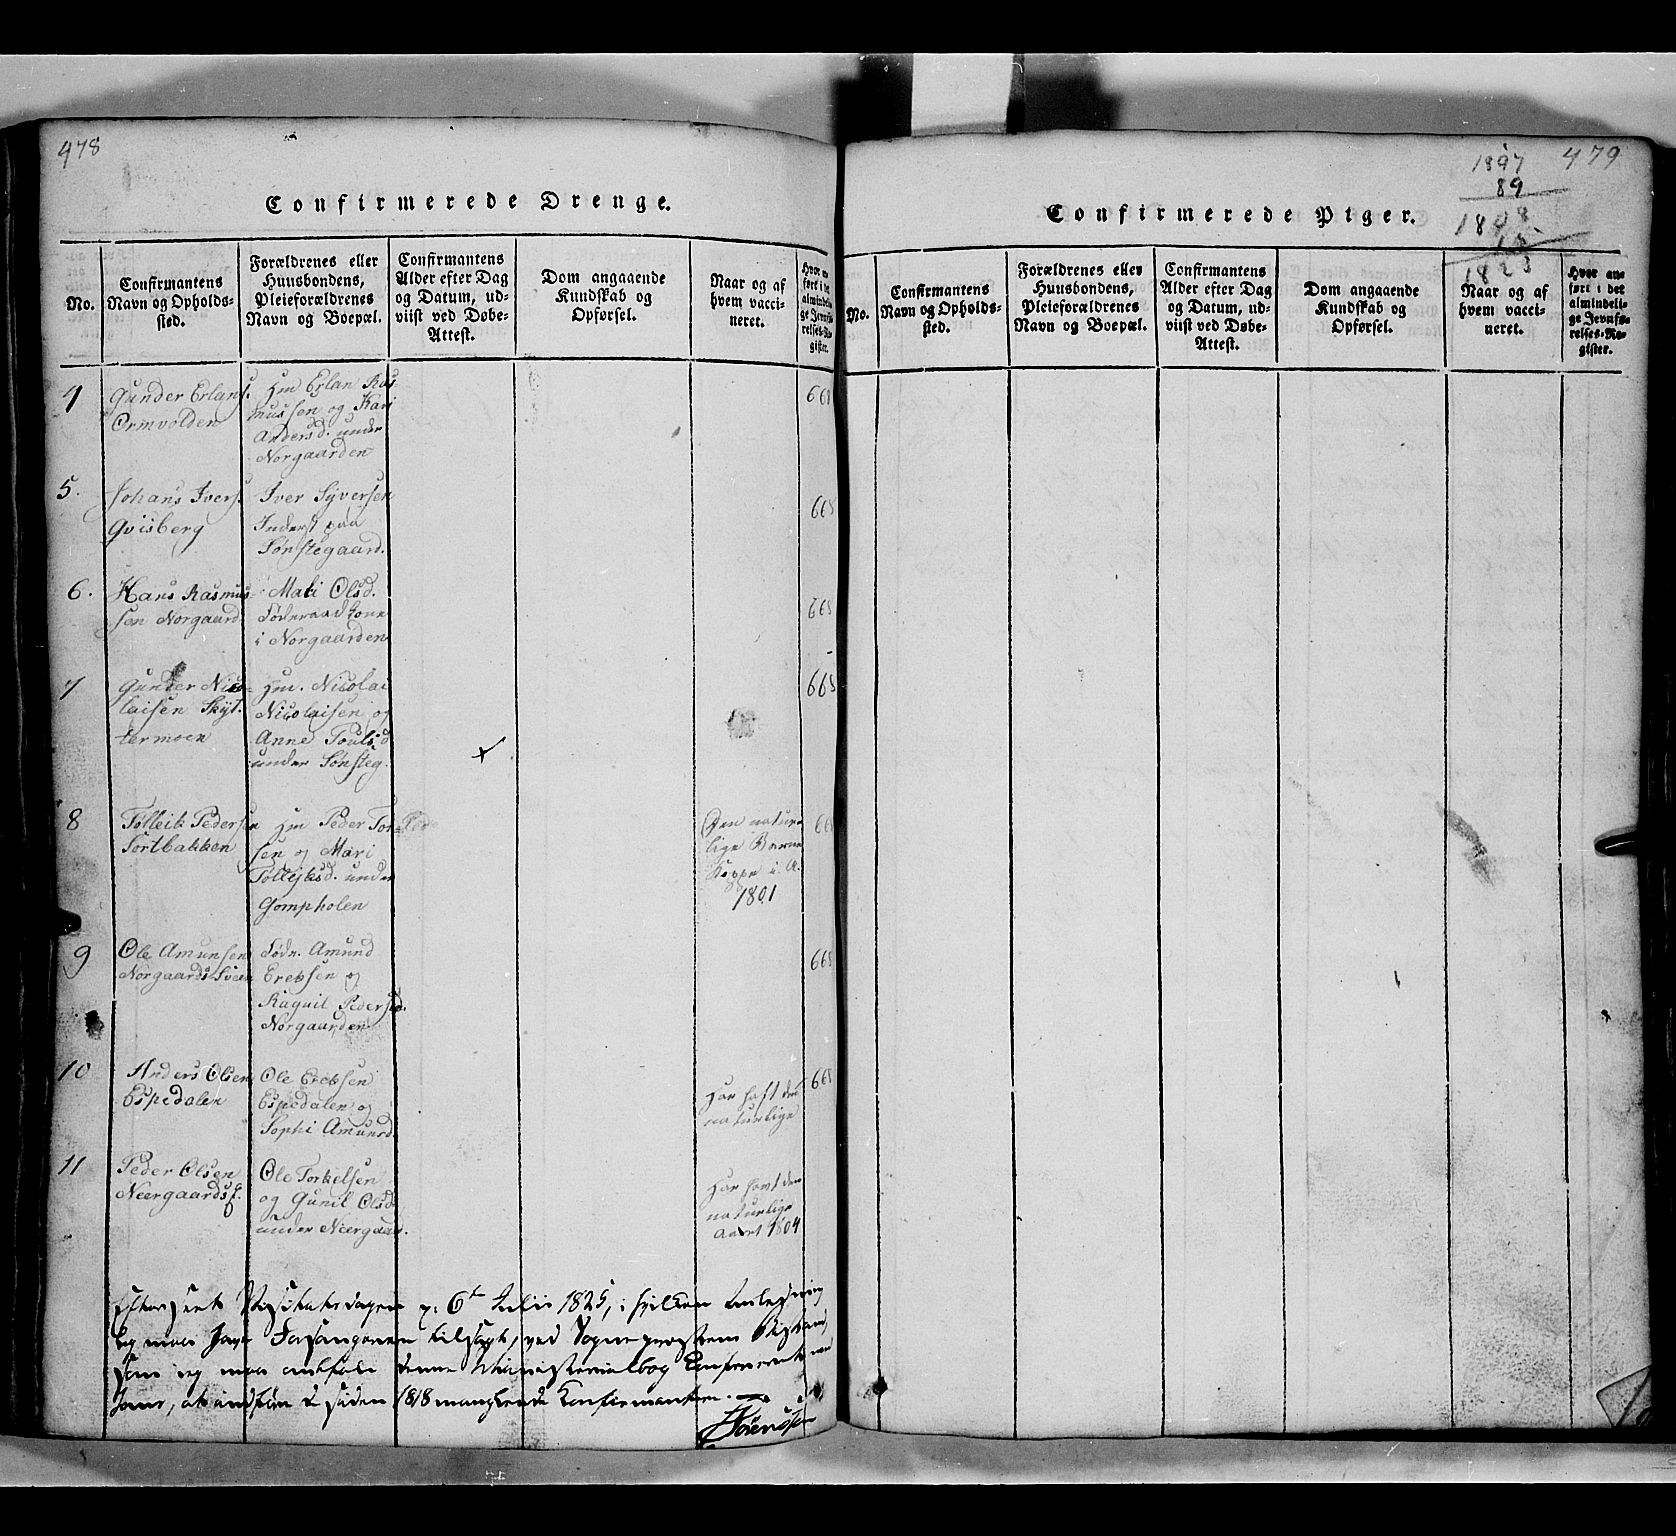 478
Confirmerede Drenge.
No.
Confirmantens
Navn og Opholds-
sted.
Forældrenes eller
Huusbondens,
Pleieforældrenes
Navn og Boepæl.
Confirmantens
Alder efter Dag
og Datum, ud-
viist ved Døbe-
Attest.
Dom angaaende
Kundskab og
Opførsel.
Naar og af
hvem vacci-
neret.
Hvor an-
ført i det
almindeli-
ge Jevnfø-
relses-Re-
gister.
4
Gunder Erlans.
Ormvolden
Hm Erlan Ras-
mussen og Kari
Andersd. under
Norgaarden
668
5.
Johans Ivers.
Qvisberg
Iver Syversen
Inderst paa
Sønstegaard.
668
6.
Hans Rasmus-
sen Norgaard
Mari Olsd.
Føderaadkone
i Norgaarden
668
7
Gunder Nico-
laisen Skyt-
termoen
Hm. Nicolai
Nicolaisen og
Anne Poulsd
under Sønsteg.
668
8
Tolleik Pedersen
Sortbakken
Hm Peder Tor-
sen og Mari
Tollejksd. under
Gompholen
Den natur-
lige Barne
Koppe i A.
1801
668
9
Ole Amunsen
Norgaards Sveen
Fødr. Amund
Ereksen og
Ragnil Pedersd.
Norgaarden
668
10
Anders Olsen
Espedalen
Ole Ereksen
Espedalen og
Sophi Amunsd.
Har haft de
naturlige
668
11
Peder Olsen
Neergaards
Ole Torkelsen
og Gunil Olsd
under Neergaar.
Har havt de
naturlige
Aaret 1804
Efterseet Visitatsdagen 6te Julii 1825, i hvilken Anledning
jeg maa have tilsagt, ved Sogneprestens
som jeg maa anbefale denne Ministerialbog
at indføre de siden 1818 manglende Confirmanter.
Sørenssen
479
1897
89
1808
15
1823
Confirmerede Piger.
No.
Confirmantens
Navn og Opholds-
sted.
Forældrenes eller
Huusbondens,
Pleieforældrenes
Navn og Boepæl.
Confirmantens
Alder efter Dag
og Datum, ud-
viist ved Døbe-
Attest.
Dom angaaende
Kundskab og
Opførsel.
Naar og af
hvem vacci-
neret.
Hvor an-
ført i det
almindeli-
ge Jevnfø-
relses-Re-
gister.